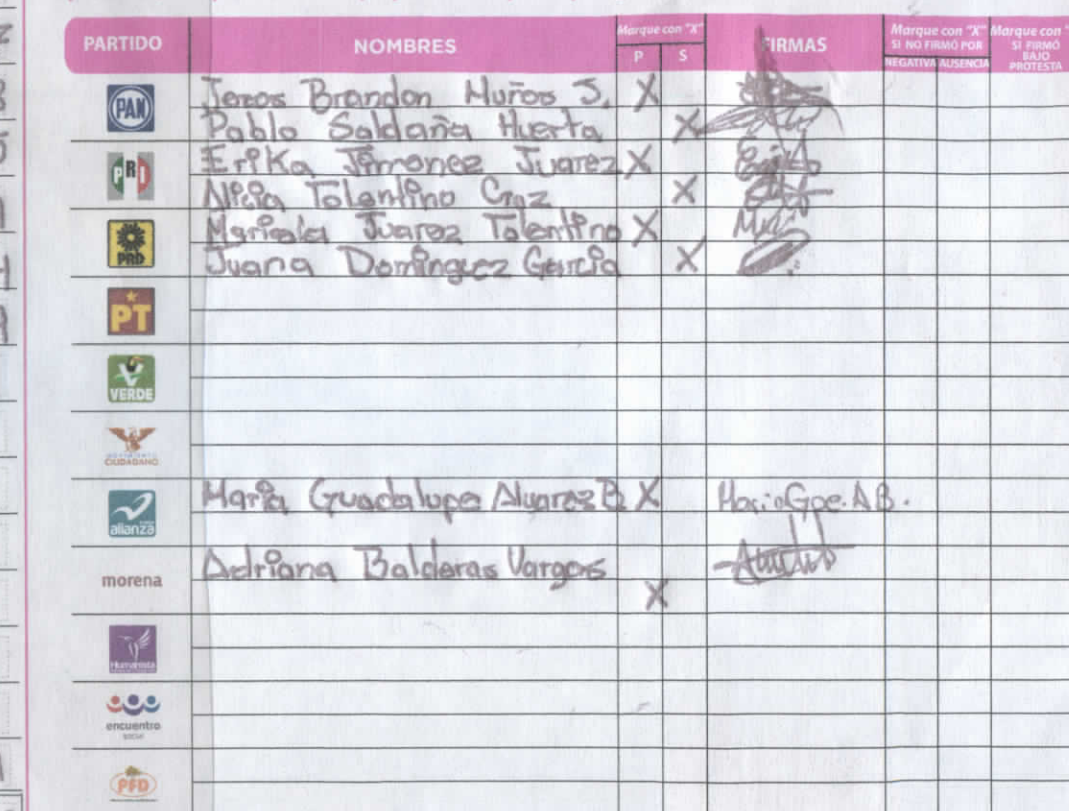 PARTIDO NOMBRES Marque con "X" P S FIRMAS Marque con "X" SI NO FIRMÓ POR NEGATIVA AUSENCIA Marque con "X" SI FIRMÓ BAJO PROTESTA
PAN Jesos Brandon Muños S. X
Pablo Saldaña Huerta X
PRI Erika Jimenez Juarez X
Alicia Tolentino Cruz X
PRD Maricela Juarez Tolentino X
Juana Dominguez Garcia X
PT
VERDE
MOVIMIENTO CIUDADANO
alianza Maria Guadalupe Alvarez B. X Maria Gpe. A B.
morena Adriana Balderas Vargas
X
Humanista
encuentro social
PFD